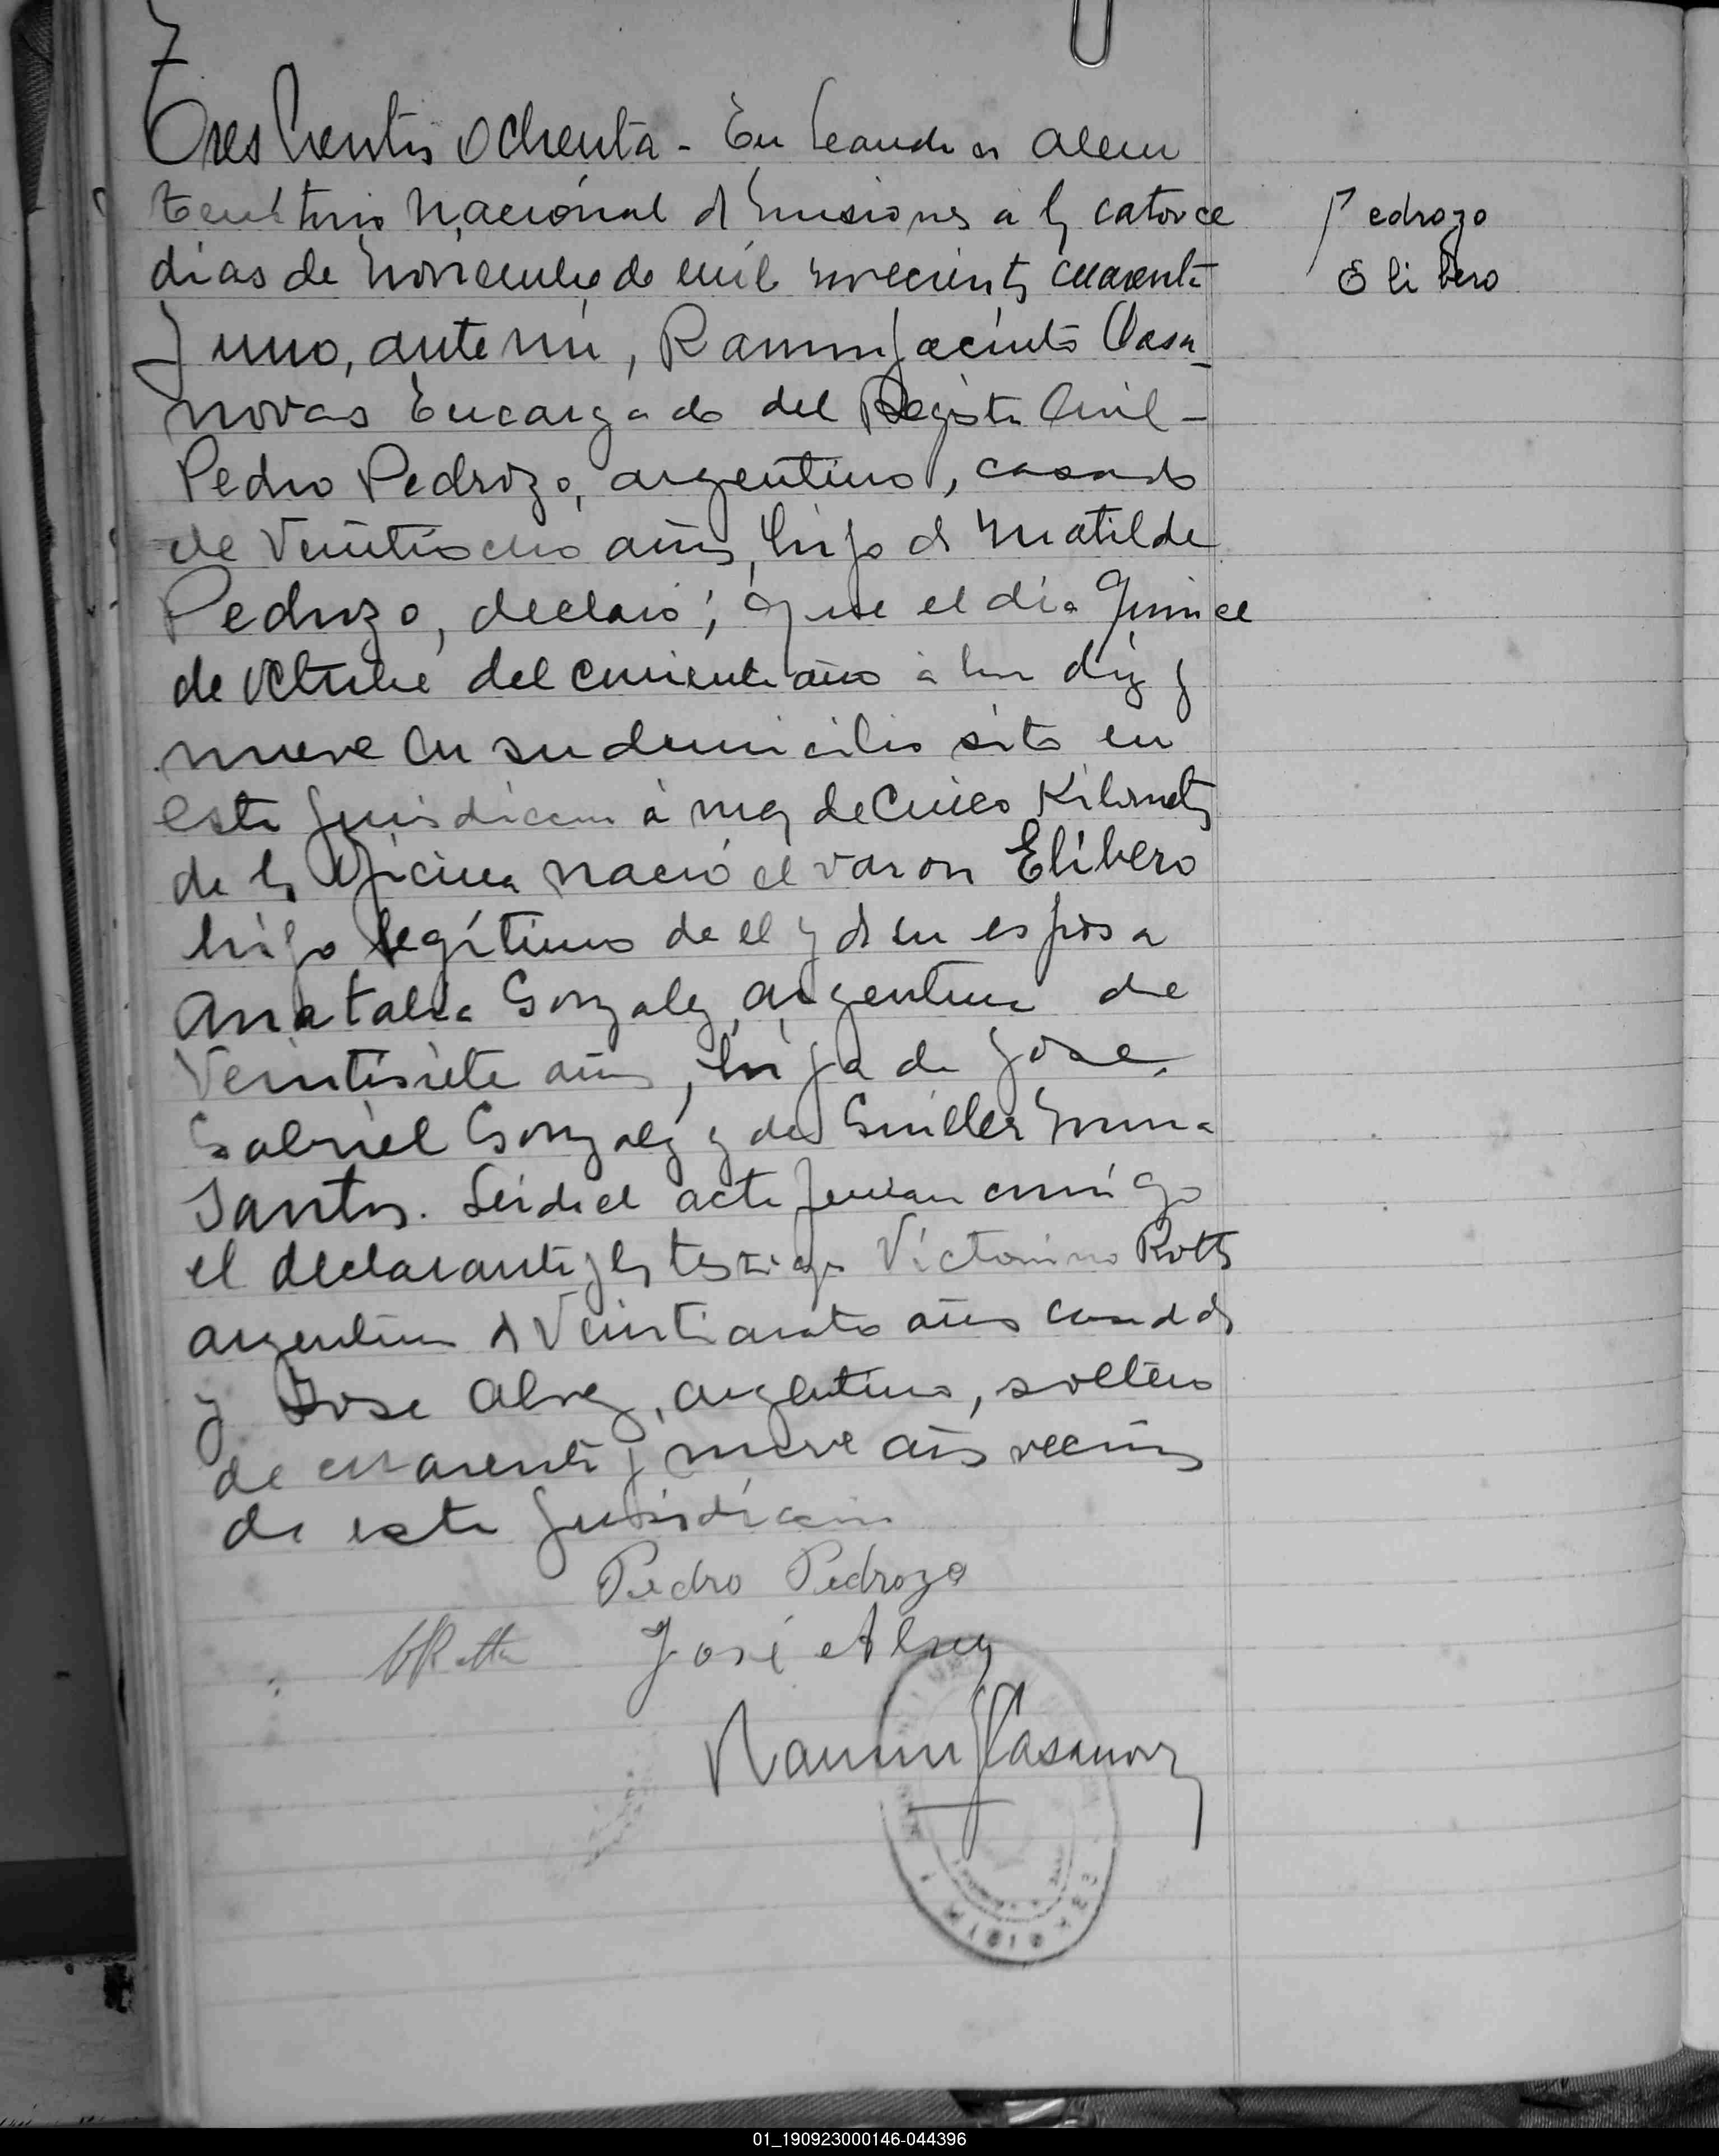 Tres Cientos Ochenta - En Leandro Alem
Territorio Nacional de Misiones a los catorce
dias de Noviembre de mil novecientos cuarenta
y uno, ante mi, Ramon Jacinto Casa-
novas Encargado del Registro Civil -
Pedro Pedrozo, argentino, casado
de Veintiocho años, hijo de Matilde
Pedrozo, declaró; Que el dia Quince
de Octubre del corriente año a hora diez y
nueve en su domicilio sito en
esta jurisdiccion a mas de Cinco Kilometros
de la Oficina nació el varon Elibero
hijo legítimo de el y de su esposa
Anatalia Gonzalez, argentina de
Veintisiete años, hija de Jose
Gabriel Gonzalez y de Guillermina
Santos. Leida el acta firman conmigo
el declarante y los testigos Victorino Rotts
argentino de Veinticuatro años casado
y Jose Alvez, argentino, soltero
de cuarenta y nueve años vecinos
de esta jurisdiccion
Pedro Pedrozo
José Alvez
Ramon J Casanovas
Pedrozo
Elibero
01_190923000146-044396